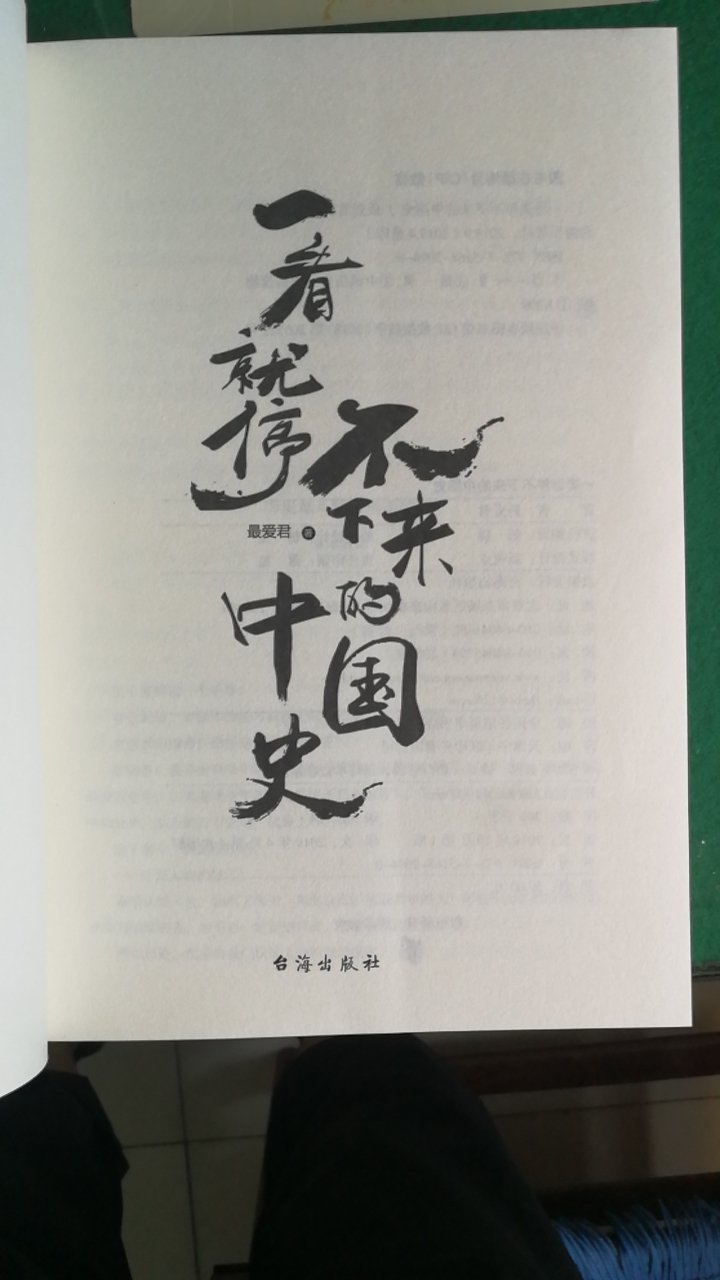 一看就停不下来的中国史
最爱君 著
台海出版社